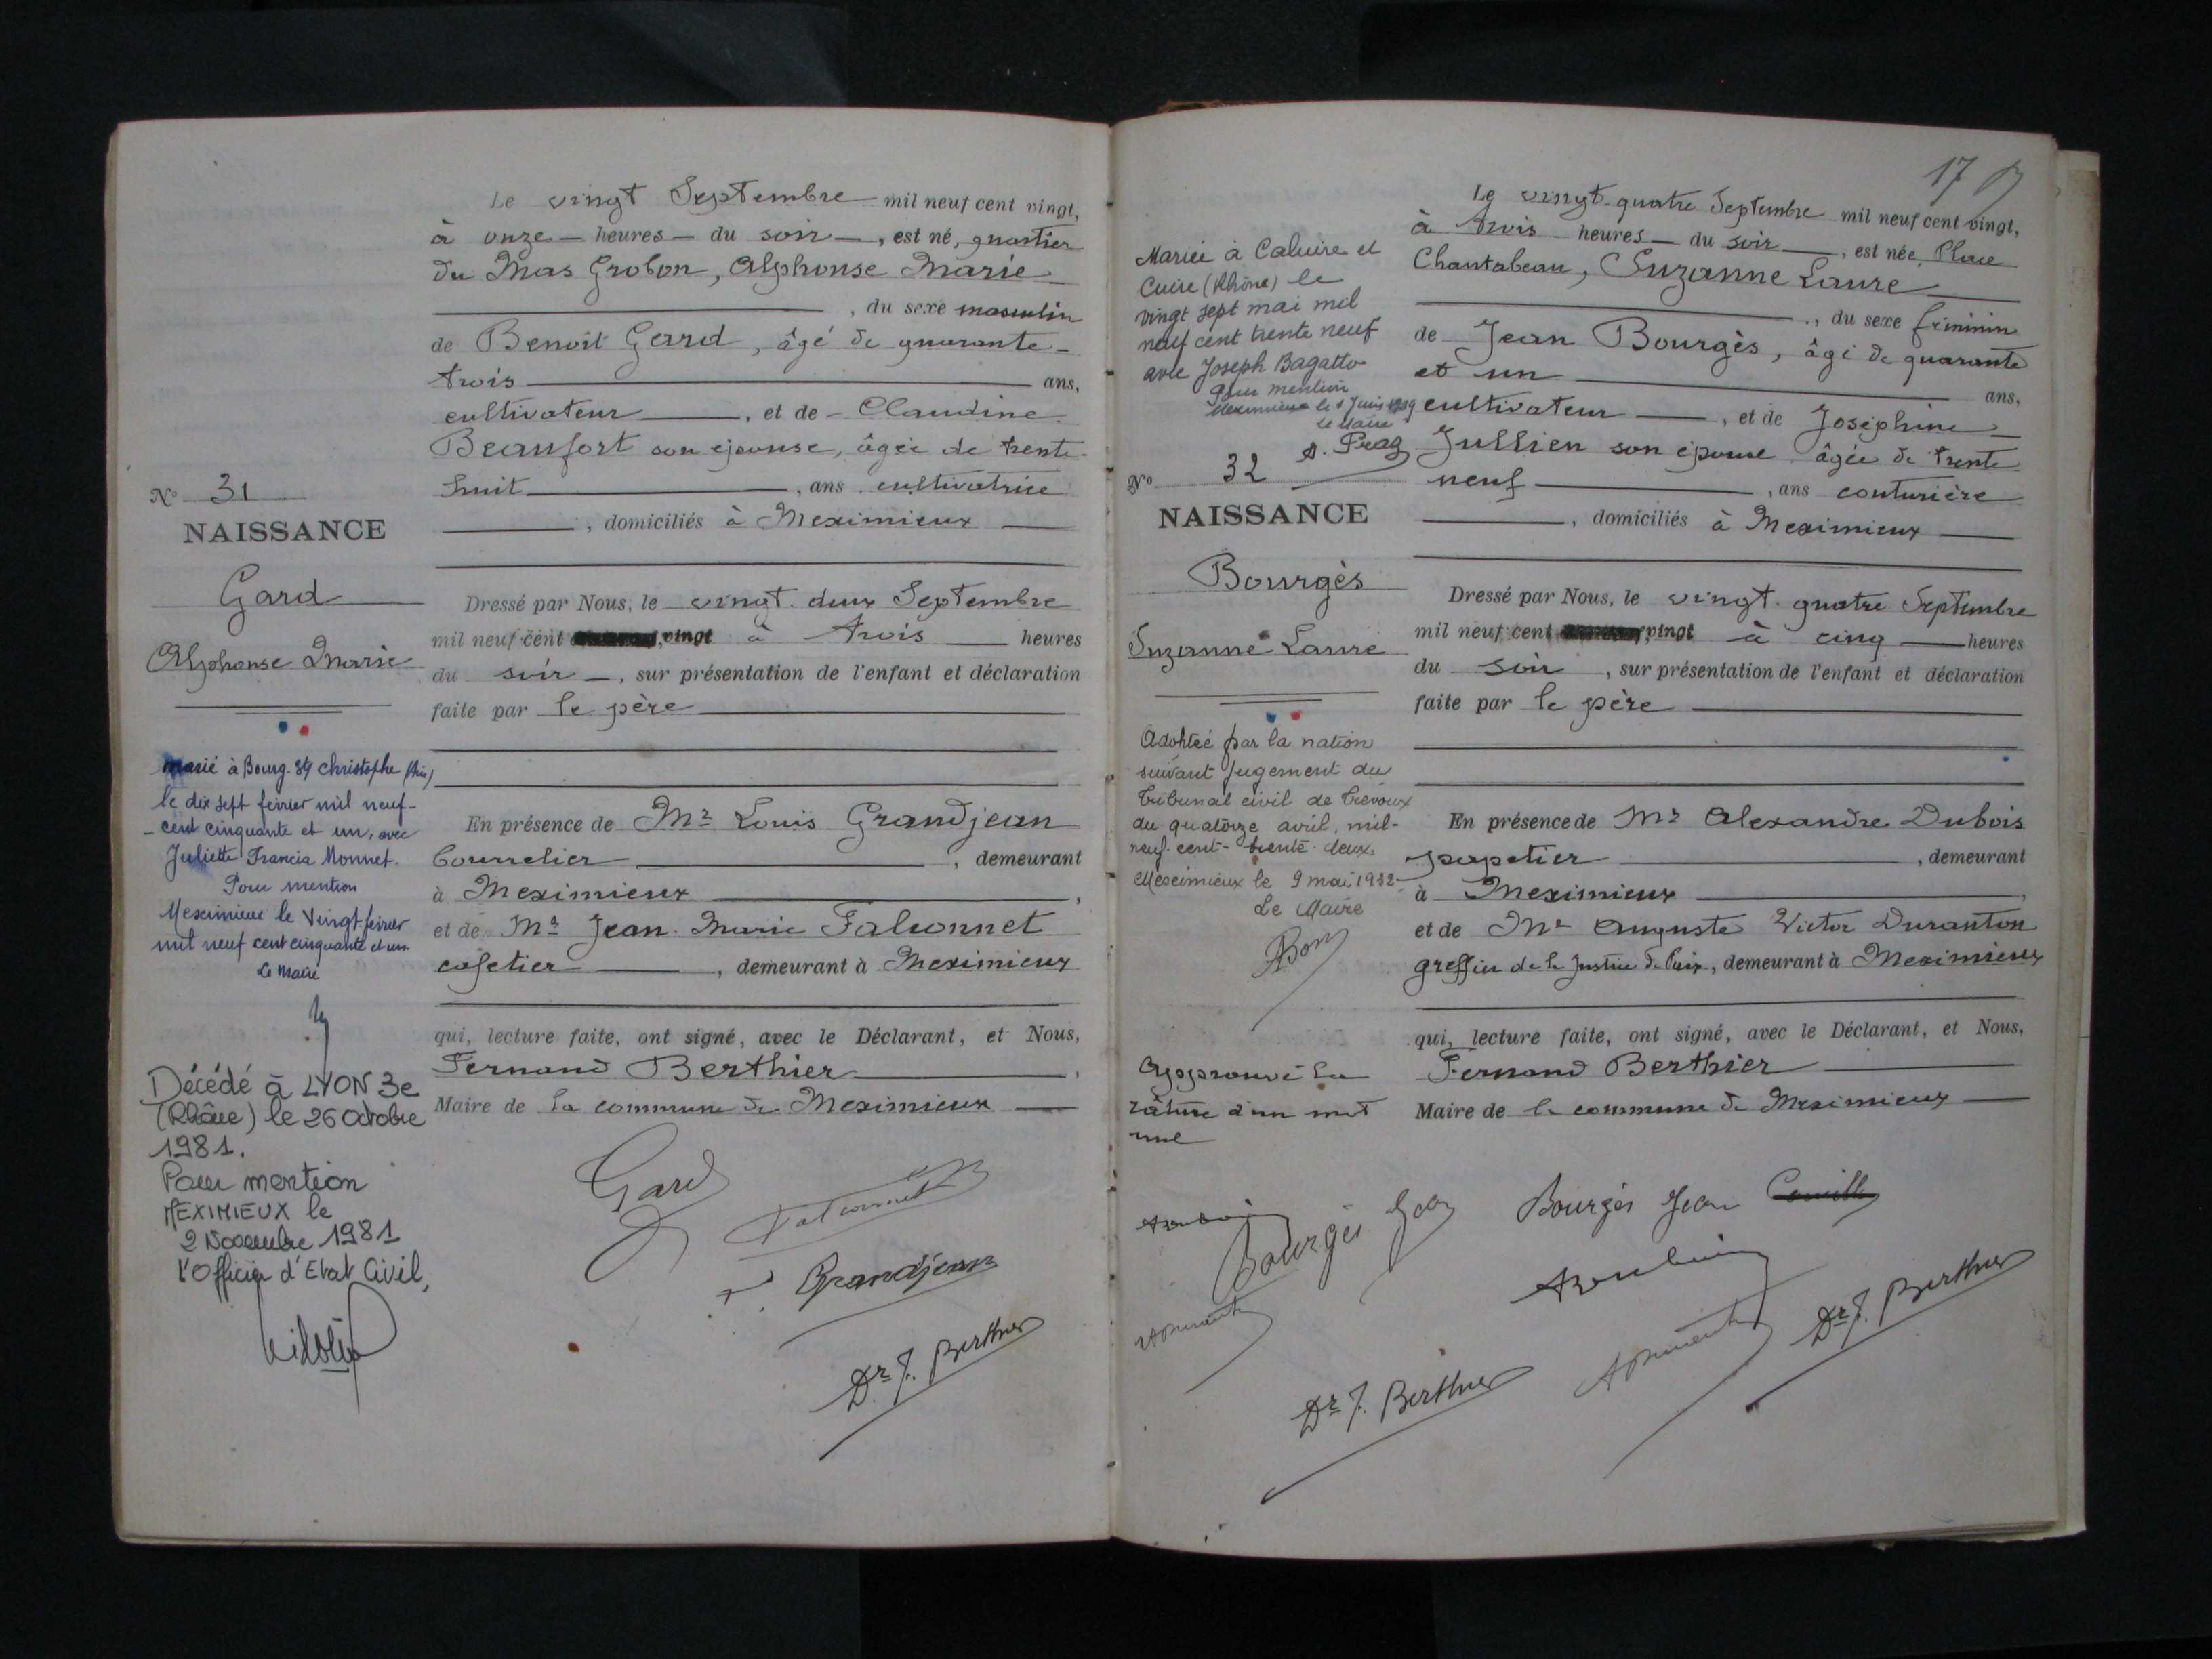 Le vingt Septembre mil neuf cent vingt,
à onze heures du soir, est né, quartier
du Mas Grobon, Alphonse Marie
, du sexe masculin
de Benoît Gard, âgé de quarante-
trois ans,
cultivateur, et de Claudine
Beaufort son épouse, âgée de trente-
huit, ans cultivatrice
, domiciliés à Meximieux
N° 31
NAISSANCE
Gard
Alphonse Marie
Dressé par Nous, le vingt-deux Septembre
mil neuf cent vingt à trois heures
du soir, sur présentation de l'enfant et déclaration
faite par le père
marié à Bourg-St Christophe (Ain)
le dix sept février mil neuf-
-cent cinquante et un, avec
Juliette Francia Monnet.
Pour mention
Meximieux le Vingt février
mil neuf cent cinquante et un
Le Maire
En présence de Mr Louis Grandjean
bourrelier, demeurant
à Meximieux,
et de Mr Jean-Marie Falconnet
cafetier, demeurant à Meximieux
qui, lecture faite, ont signé, avec le Déclarant, et Nous,
Fernand Berthier,
Maire de la commune de Meximieux
Décédé à LYON 3e
(Rhône) le 26 Octobre
1981.
Pour mention
MEXIMIEUX le
2 Novembre 1981
l'Officier d'Etat Civil,
Gard
Falconnet
Grandjean
Dr F. Berthier
17
Le vingt-quatre Septembre mil neuf cent vingt,
à trois heures du soir, est née, Place
Chantabeau, Suzanne Laure
, du sexe féminin
de Jean Bourgès, âgé de quarante
et un ans,
cultivateur, et de Joséphine
Jullien son épouse âgée de trente
neuf, ans couturière
, domiciliés à Meximieux
Mariée à Caluire et
Cuire (Rhône) le
vingt sept mai mil
neuf cent trente neuf
avec Joseph Bagatto
Pour mention
Meximieux le 1 Juin 1939
le Maire
N° 32
NAISSANCE
Bourgès
Suzanne Laure
Dressé par Nous, le vingt-quatre Septembre
mil neuf cent vingt à cinq heures
du soir, sur présentation de l'enfant et déclaration
faite par le père
Adoptée par la nation
suivant jugement du
Tribunal civil de Trévoux
du quatorze avril, mil-
neuf-cent-trente-deux.
Meximieux le 9 mai 1932
Le Maire
En présence de Mr Alexandre Dubois
papetier, demeurant
à Meximieux,
et de Mr Auguste Victor Duranton
greffier de la Justice de Paix, demeurant à Meximieux
qui, lecture faite, ont signé, avec le Déclarant, et Nous,
Fernand Berthier
Maire de la commune de Meximieux
Approuvé la
râture d'un mot
nul
Bourgès Jean
Bourgès Jean
Dr F. Berthier
Dr F. Berthier